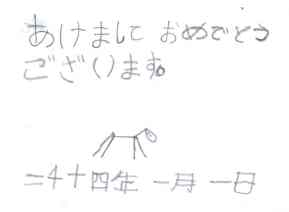 あけまして おめでとう
ございます。
二千十四年 一月 一日